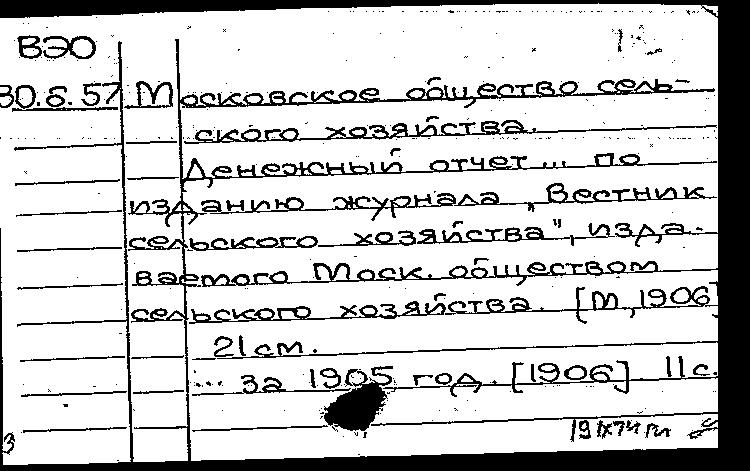 ВЭО
30.6.57 Московское общество сель-
ского хозяйства.
Денежный отчет... по
изданию журнала „Вестник
сельского хозяйства", изда-
ваемого Моск. обществом
сельского хозяйства. [М, 1906]
21 см.
... за 1905 год. [1906] 11 с.
3